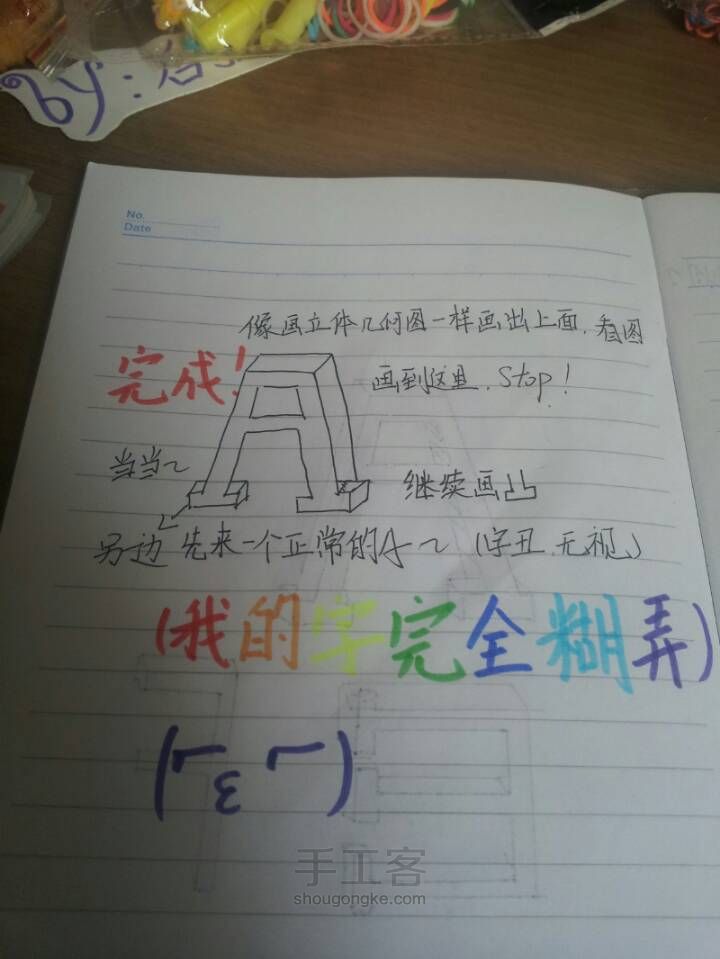 by:
No.
Date
像画立体几何图一样画出上面,看图
完成!
画到这里,Stop!
当当~
继续画凸
另边 先来一个正常的A~ (字丑,无视)
(我的字完全糊弄)
手工客
shougongke.com